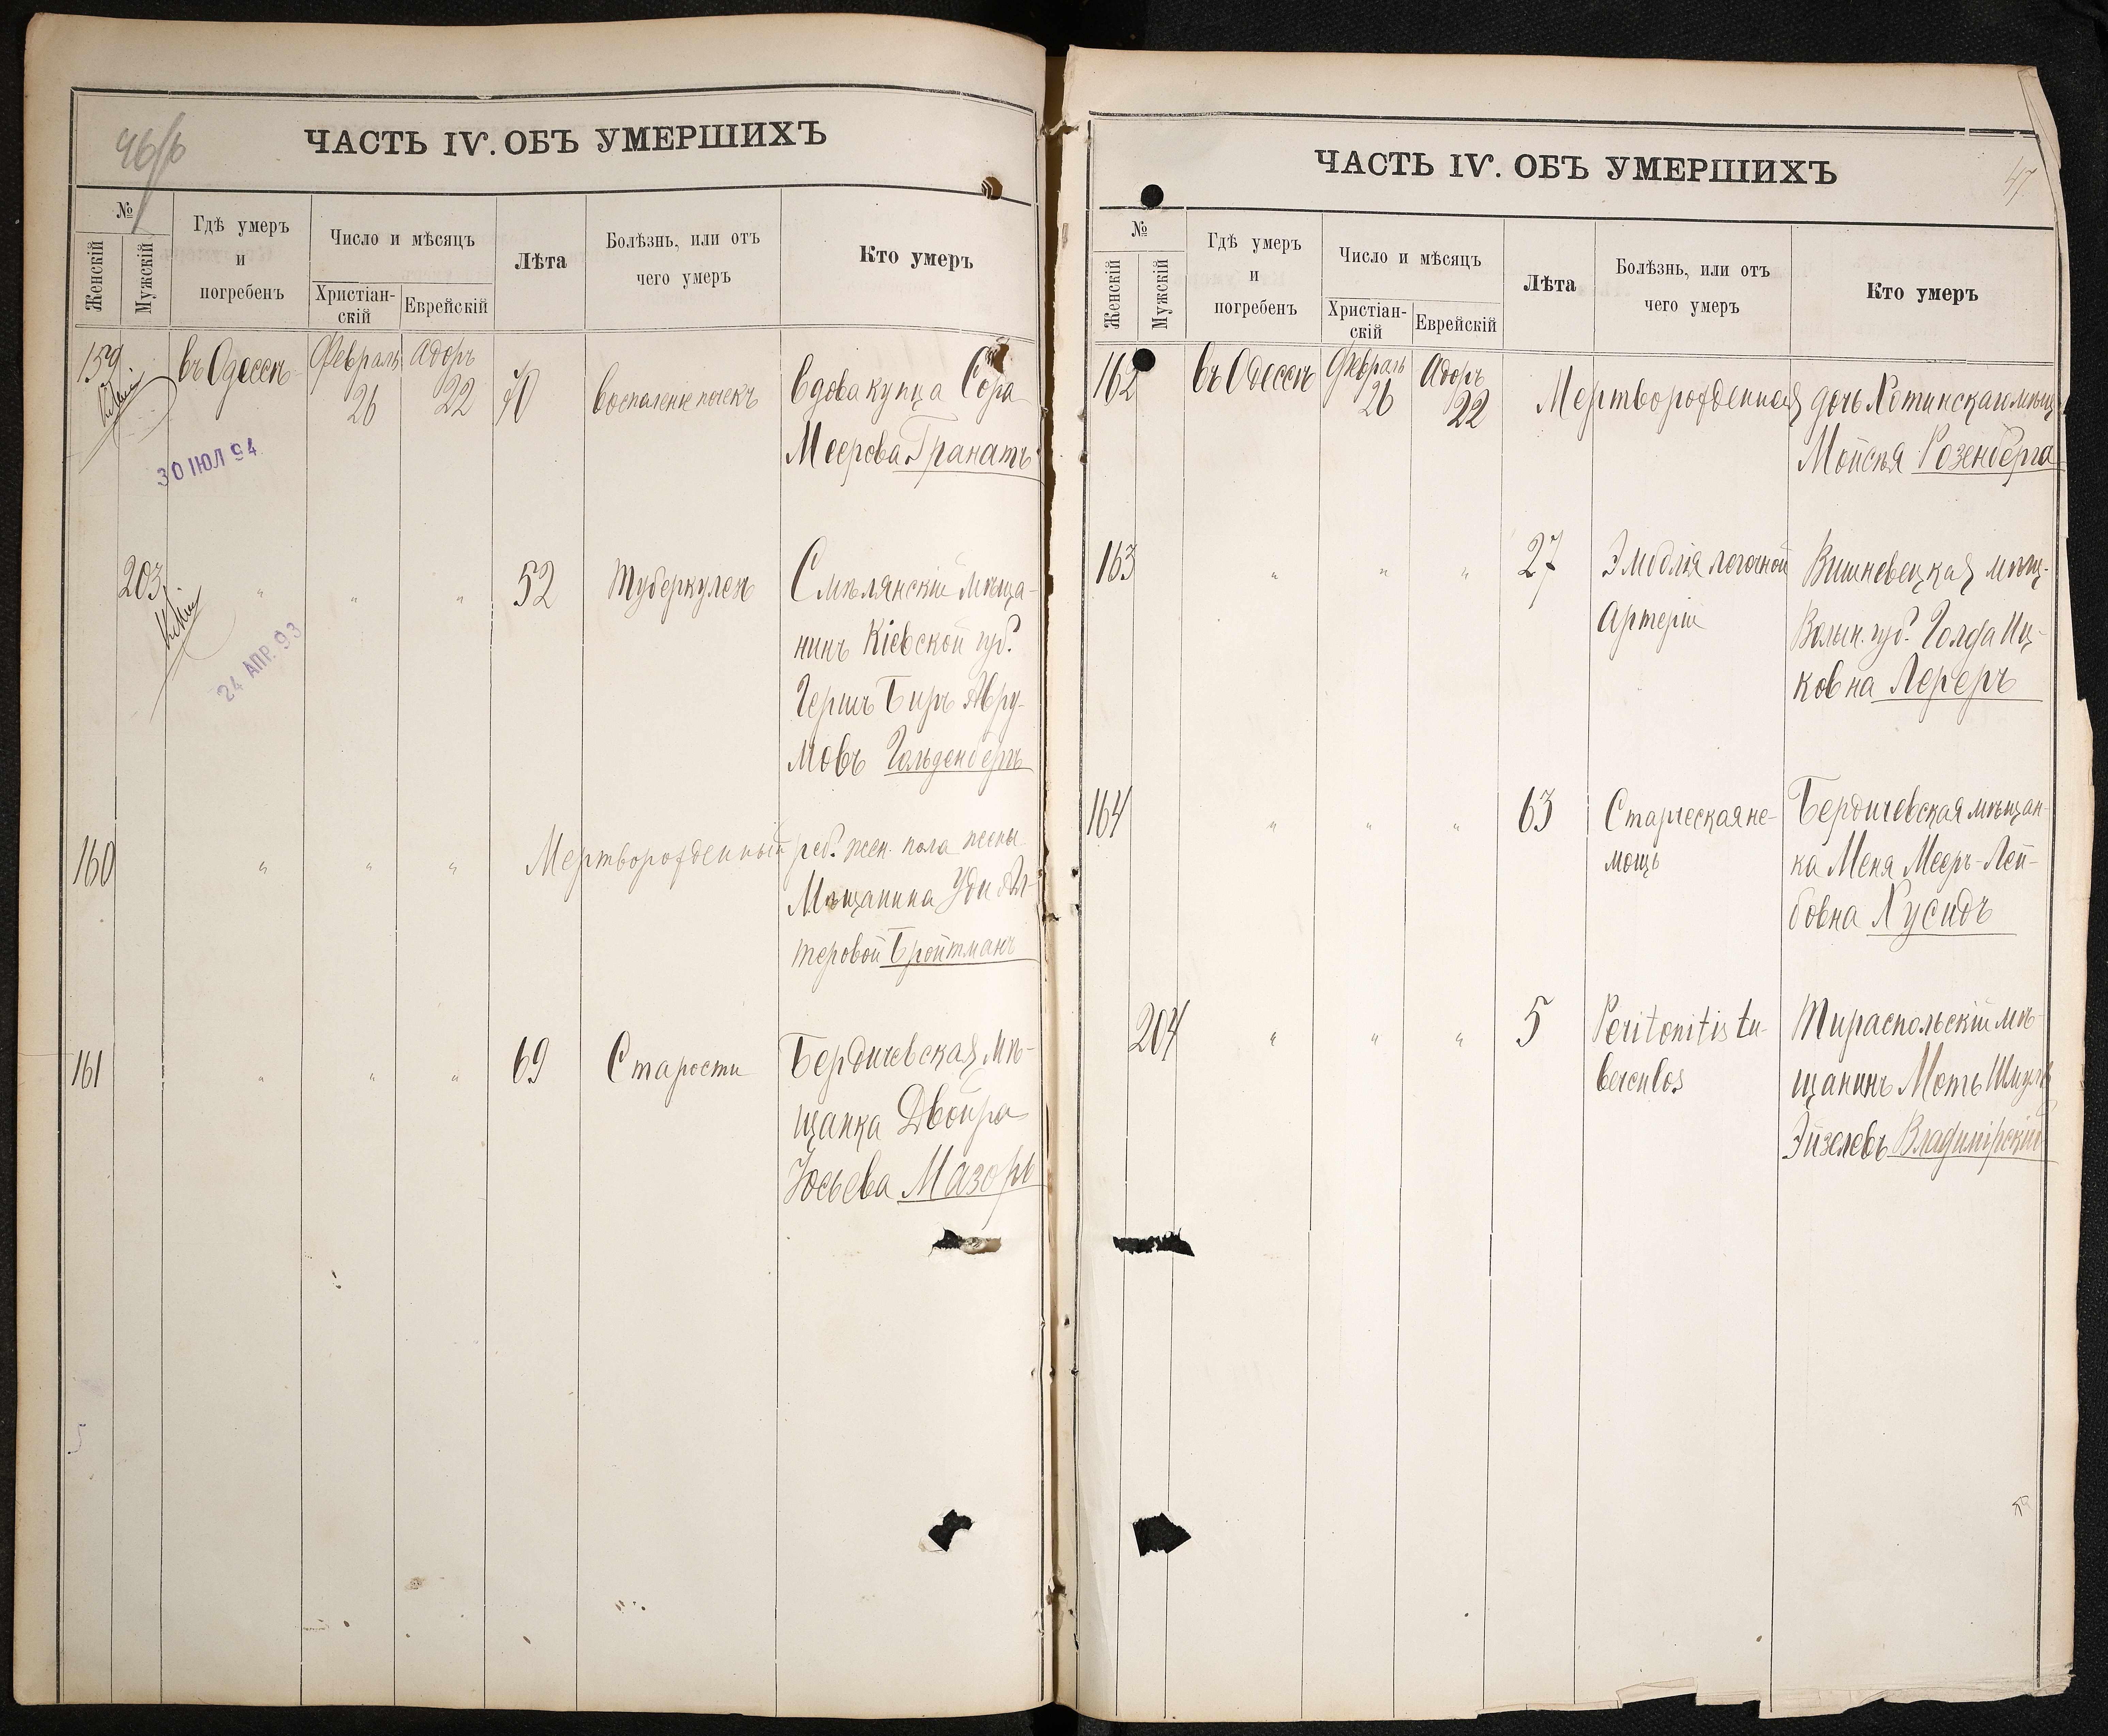 46/
ЧАСТЬ IV. ОБЪ УМЕРШИХЪ
№
Женскій
Мужскій
Гдѣ умеръ
и
погребенъ
Число и мѣсяцъ
Христіан-
скій
Еврейскій
Лѣта
Болѣзнь, или отъ
чего умеръ
Кто умеръ
159 въ Одессѣ Февраль Адоръ
26 22 70 воспаленіе почекъ вдова купца Сора
Меерова Гранатъ
30 ІЮЛ 94
203 " " " 52 Туберкулезъ Смѣлянскій мѣща-
нинъ Кіевской губ.
Гершъ Беръ Абру-
мовъ Гольденбергъ
24 АПР. 93
160 " " " Мертворожденный реб. жен. пола жены
Мѣщанина
теровой Бройтманъ
161 " " " 69 Старости Бердичевская мѣ-
щанка Двойра
Юсьева Мазоръ
47
ЧАСТЬ IV. ОБЪ УМЕРШИХЪ
№
Женскій
Мужскій
Гдѣ умеръ
и
погребенъ
Число и мѣсяцъ
Христіан-
скій
Еврейскій
Лѣта
Болѣзнь, или отъ
чего умеръ
Кто умеръ
162 въ Одессѣ Февраль Адоръ
26 22 Мертворожденная дочь Хотинскаго мѣщ
Мойсея Розенберга
163 " " " 27 Эмболія легочной Вишневецкая мѣщ.
Артеріи Волын. губ. Голда Иц-
ковна Лереръ
164 " " " 63 Старческая не- Бердичевская мѣщан-
мощь ка Меня Мееръ-Лей-
бовна Хусидъ
204 " " " 5 Peritonitis tu- Тираспольскій мѣ-
berculos щанинъ Моть Шмуль
Эйзелевъ Владимірскій